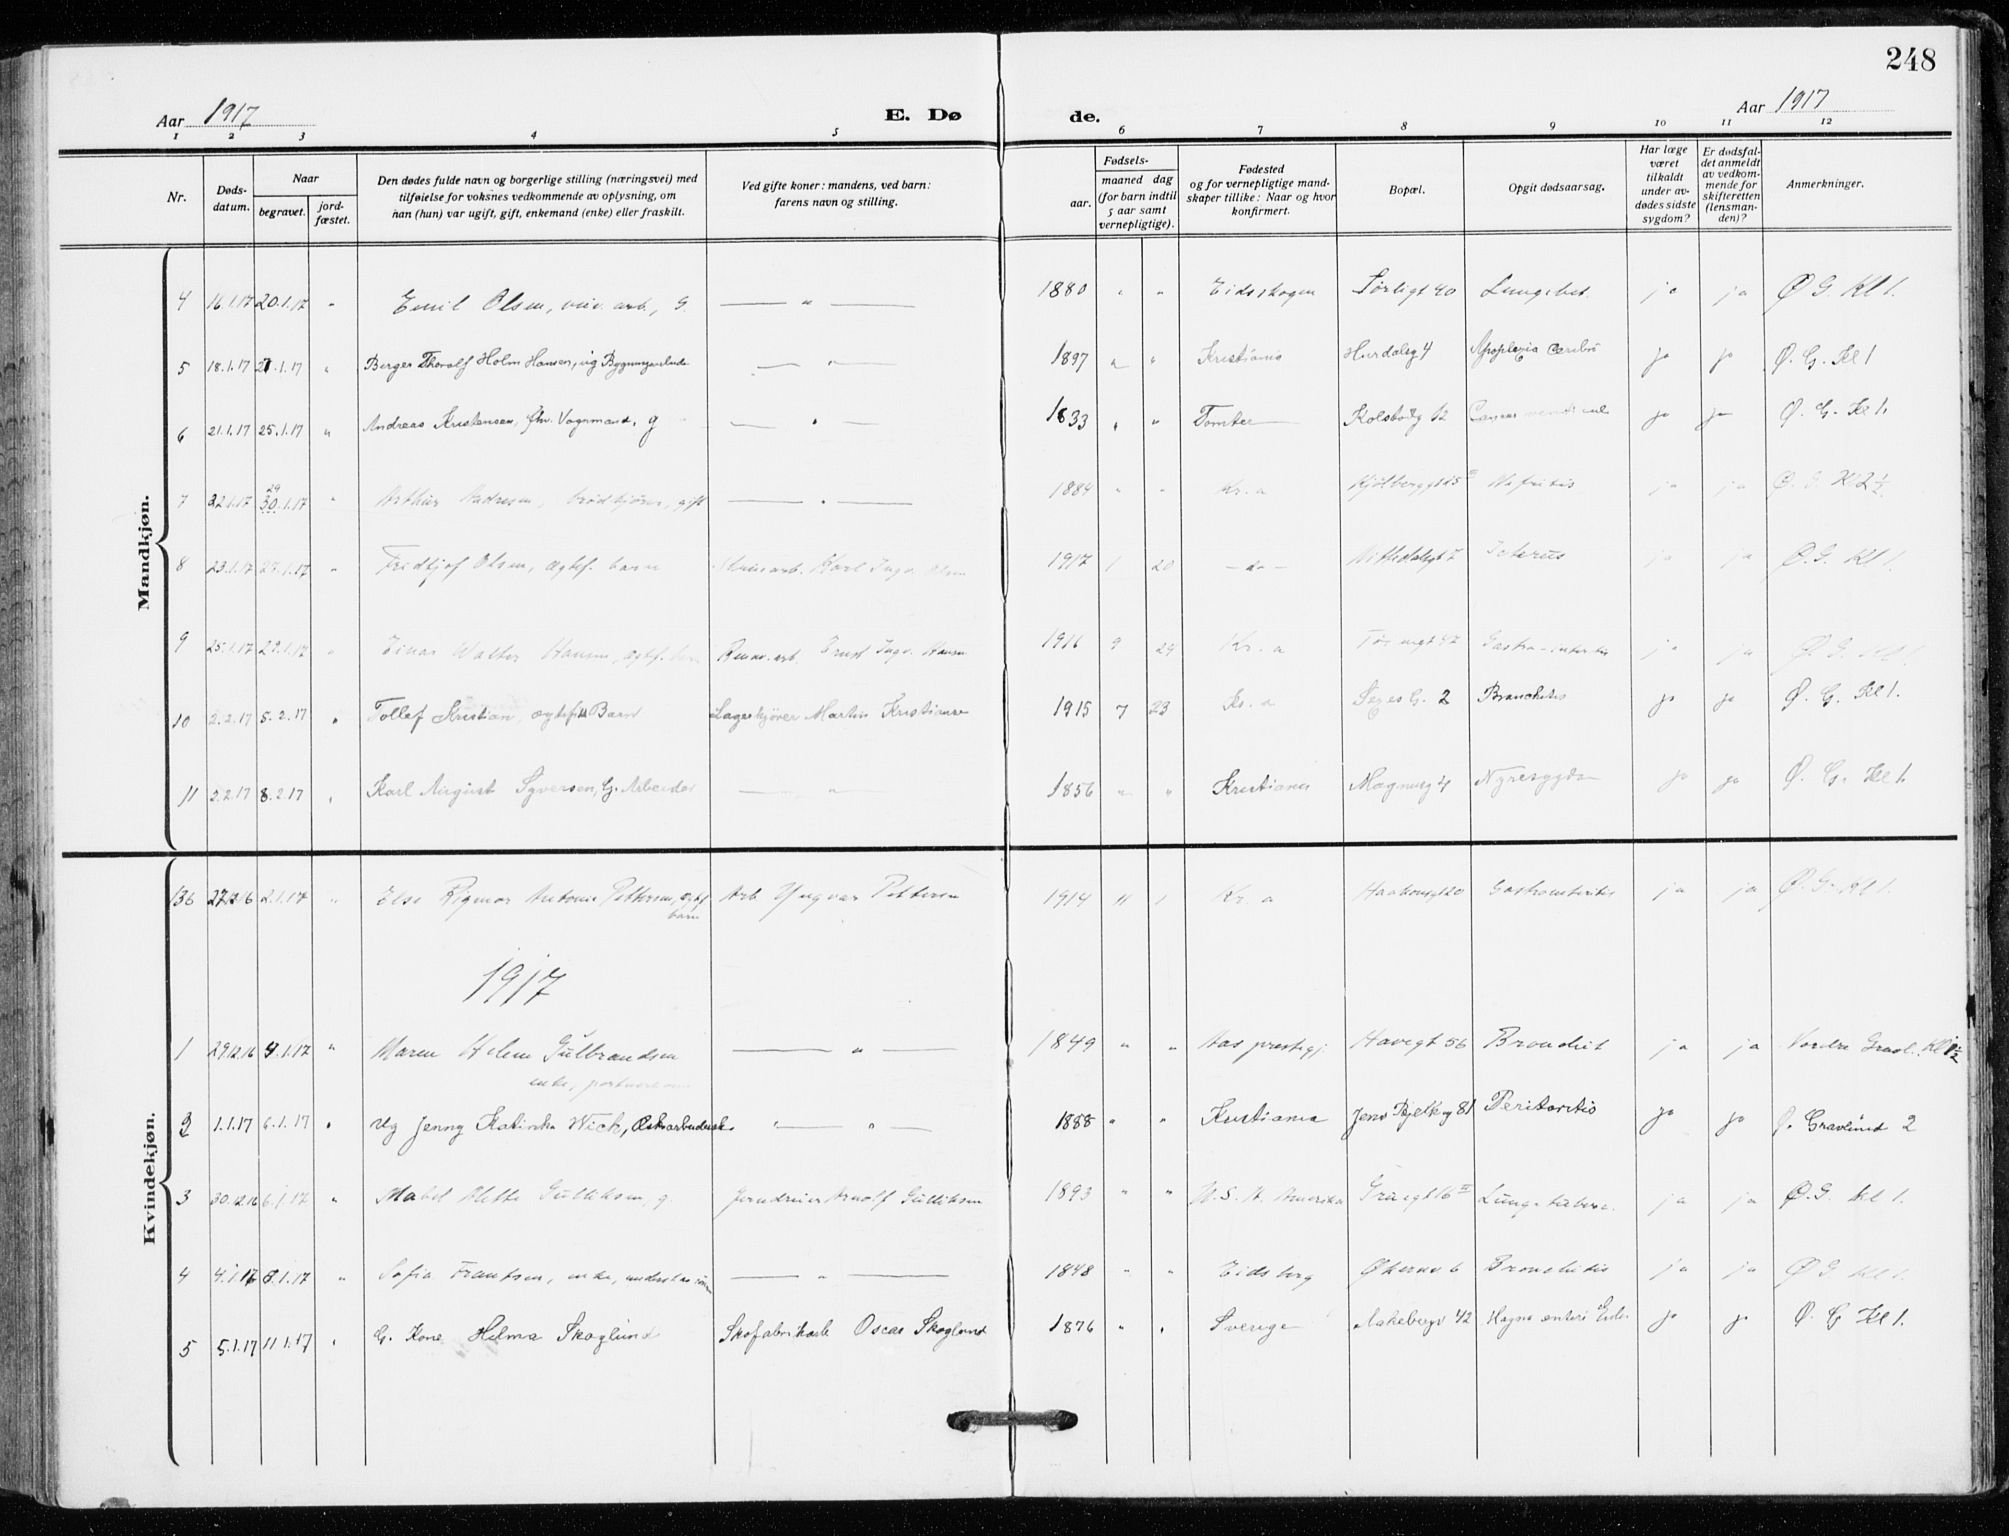 248
Aar 1917
E. Dø de.
Aar 1917
1 2 3 4 5 6 7 8 9 10 11 12
Nr.
Døds-datum.
Naar
begravet.
jord-fæstet.
Den dødes fulde navn og borgerlige stilling (næringsvei) med
tilføielse for voksnes vedkommende av oplysning, om
han (hun) var ugift, gift, enkemand (enke) eller fraskilt.
Ved gifte koner: mandens, ved barn:
farens navn og stilling.
Fødsels-
aar.
maaned dag
(for barn indtil
5 aar samt
vernepligtige).
Fødested
og for vernepligtige mand-
skaper tillike: Naar og hvor
konfirmert.
Bopæl.
Opgit dødsaarsag.
Har læge
været
tilkaldt
under av-
dødes sidste
sygdom?
Er dødsfal-
det anmeldt
av vedkom-
mende for
skifteretten
(lensman-
den)?
Anmerkninger.
Mandkjøn.
4 16.1.17 20.1.17 " Emil Olsen, arb., g. — " — 1880 " " Eidsskogen Sørligt 40 Lungebet. ja ja Ø G. Kl 1.
5 18.1.17 21.1.17 " Birger Thoralf Holm Hansen, ug — " — 1897 " " Kristiania Hurdalsg 4 Apoplexia Cerebri ja ja Ø. G. Kl 1
6 21.1.17 25.1.17 " Andreas Kristensen, fhv. Vognmand, g — " — 1833 " " Tomter Kolstadg 12 Cancer ventriculi ja ja Ø. G. Kl 1.
7 22.1.17 29 30.1.17 " Arthur Andresen, brødkjører, gift — " — 1884 " " Kr.a Kjølberggt 25 III Nefritis ja ja Ø. G Kl 2 1/2.
8 23.1.17 27.1.17 " Fridtjof Olsen, ægtef. barn Karl Ingv. Olsen 1917 1 20 — do — Nittedalsgt 7 Icterus ja ja Ø. G. Kl 1.
9 25.1.17 29.1.17 " Einar Walter Hansen, ægtf. barn Ernst Ingv. Hansen 1916 9 29 Kr. a Gastro-interitis ja ja Ø. G. Kl 1.
10 2.2.17 5.2.17 " Tollef Kristian, ægtefdt Barn Lagerkjører Martin Kristiansen 1915 7 23 Kr. a Sexes G. 2 Bronchitis ja ja Ø. G. Kl 1.
11 2.2.17 8.2.17 " Karl August Syversen, G. Arbeider — " — 1856 " " Kristiania Magnusg 4 Nyresygdom ja ja Ø. G. Kl 1.
Kvindekjøn.
136 27.12.16 2.1.17 " Else Rigmor Antonie Pettersen, ægtf. barn Arb. Yngvar Pettersen 1914 11 1 Kr. a Haakonsgt 20 Gastroenteritis ja ja Ø. G. Kl 1.
1917
1 29.12.16 4.1.17 " Maren Helene Gulbrandsen — " — 1849 " " Aas prestegj. Havegt 56 Bronchit ja ja Nordre Gravl. Kl 1 1/2
enke,
2 1.1.17 6.1.17 " Ug Jenny Katinka Wick, " — " — 1888 " " Kristiania Jens Bjelkesg 81 Peritonitis ja ja Ø. Gravlund 2
3 30.12.16 6.1.17 " Mabel Alette Gulliksen, g. Jerndreier Arnolf Gulliksen 1893 " " U.S.A. Amerika Graagt 16 II Lungetuberc. ja ja Ø. G kl 1.
4 4.1.17 8.1.17 " Sofia Frantsen, enke, — " — 1848 " " Eidsberg Økernv 6 Bronchitis ja ja Ø G kl 1.
5 5.1.17 11.1.17 " G. Kone Hilma Skoglund Skofabrikarb Oscar Skoglund 1876 " " Sverige Aakebergv 42 ja ja Ø G Kl 1.